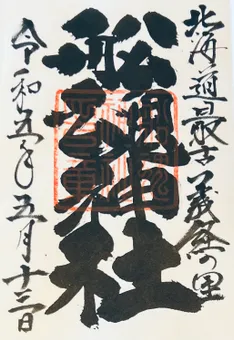 北海道最古義経の里
船魂神社
令和五年五月十三日